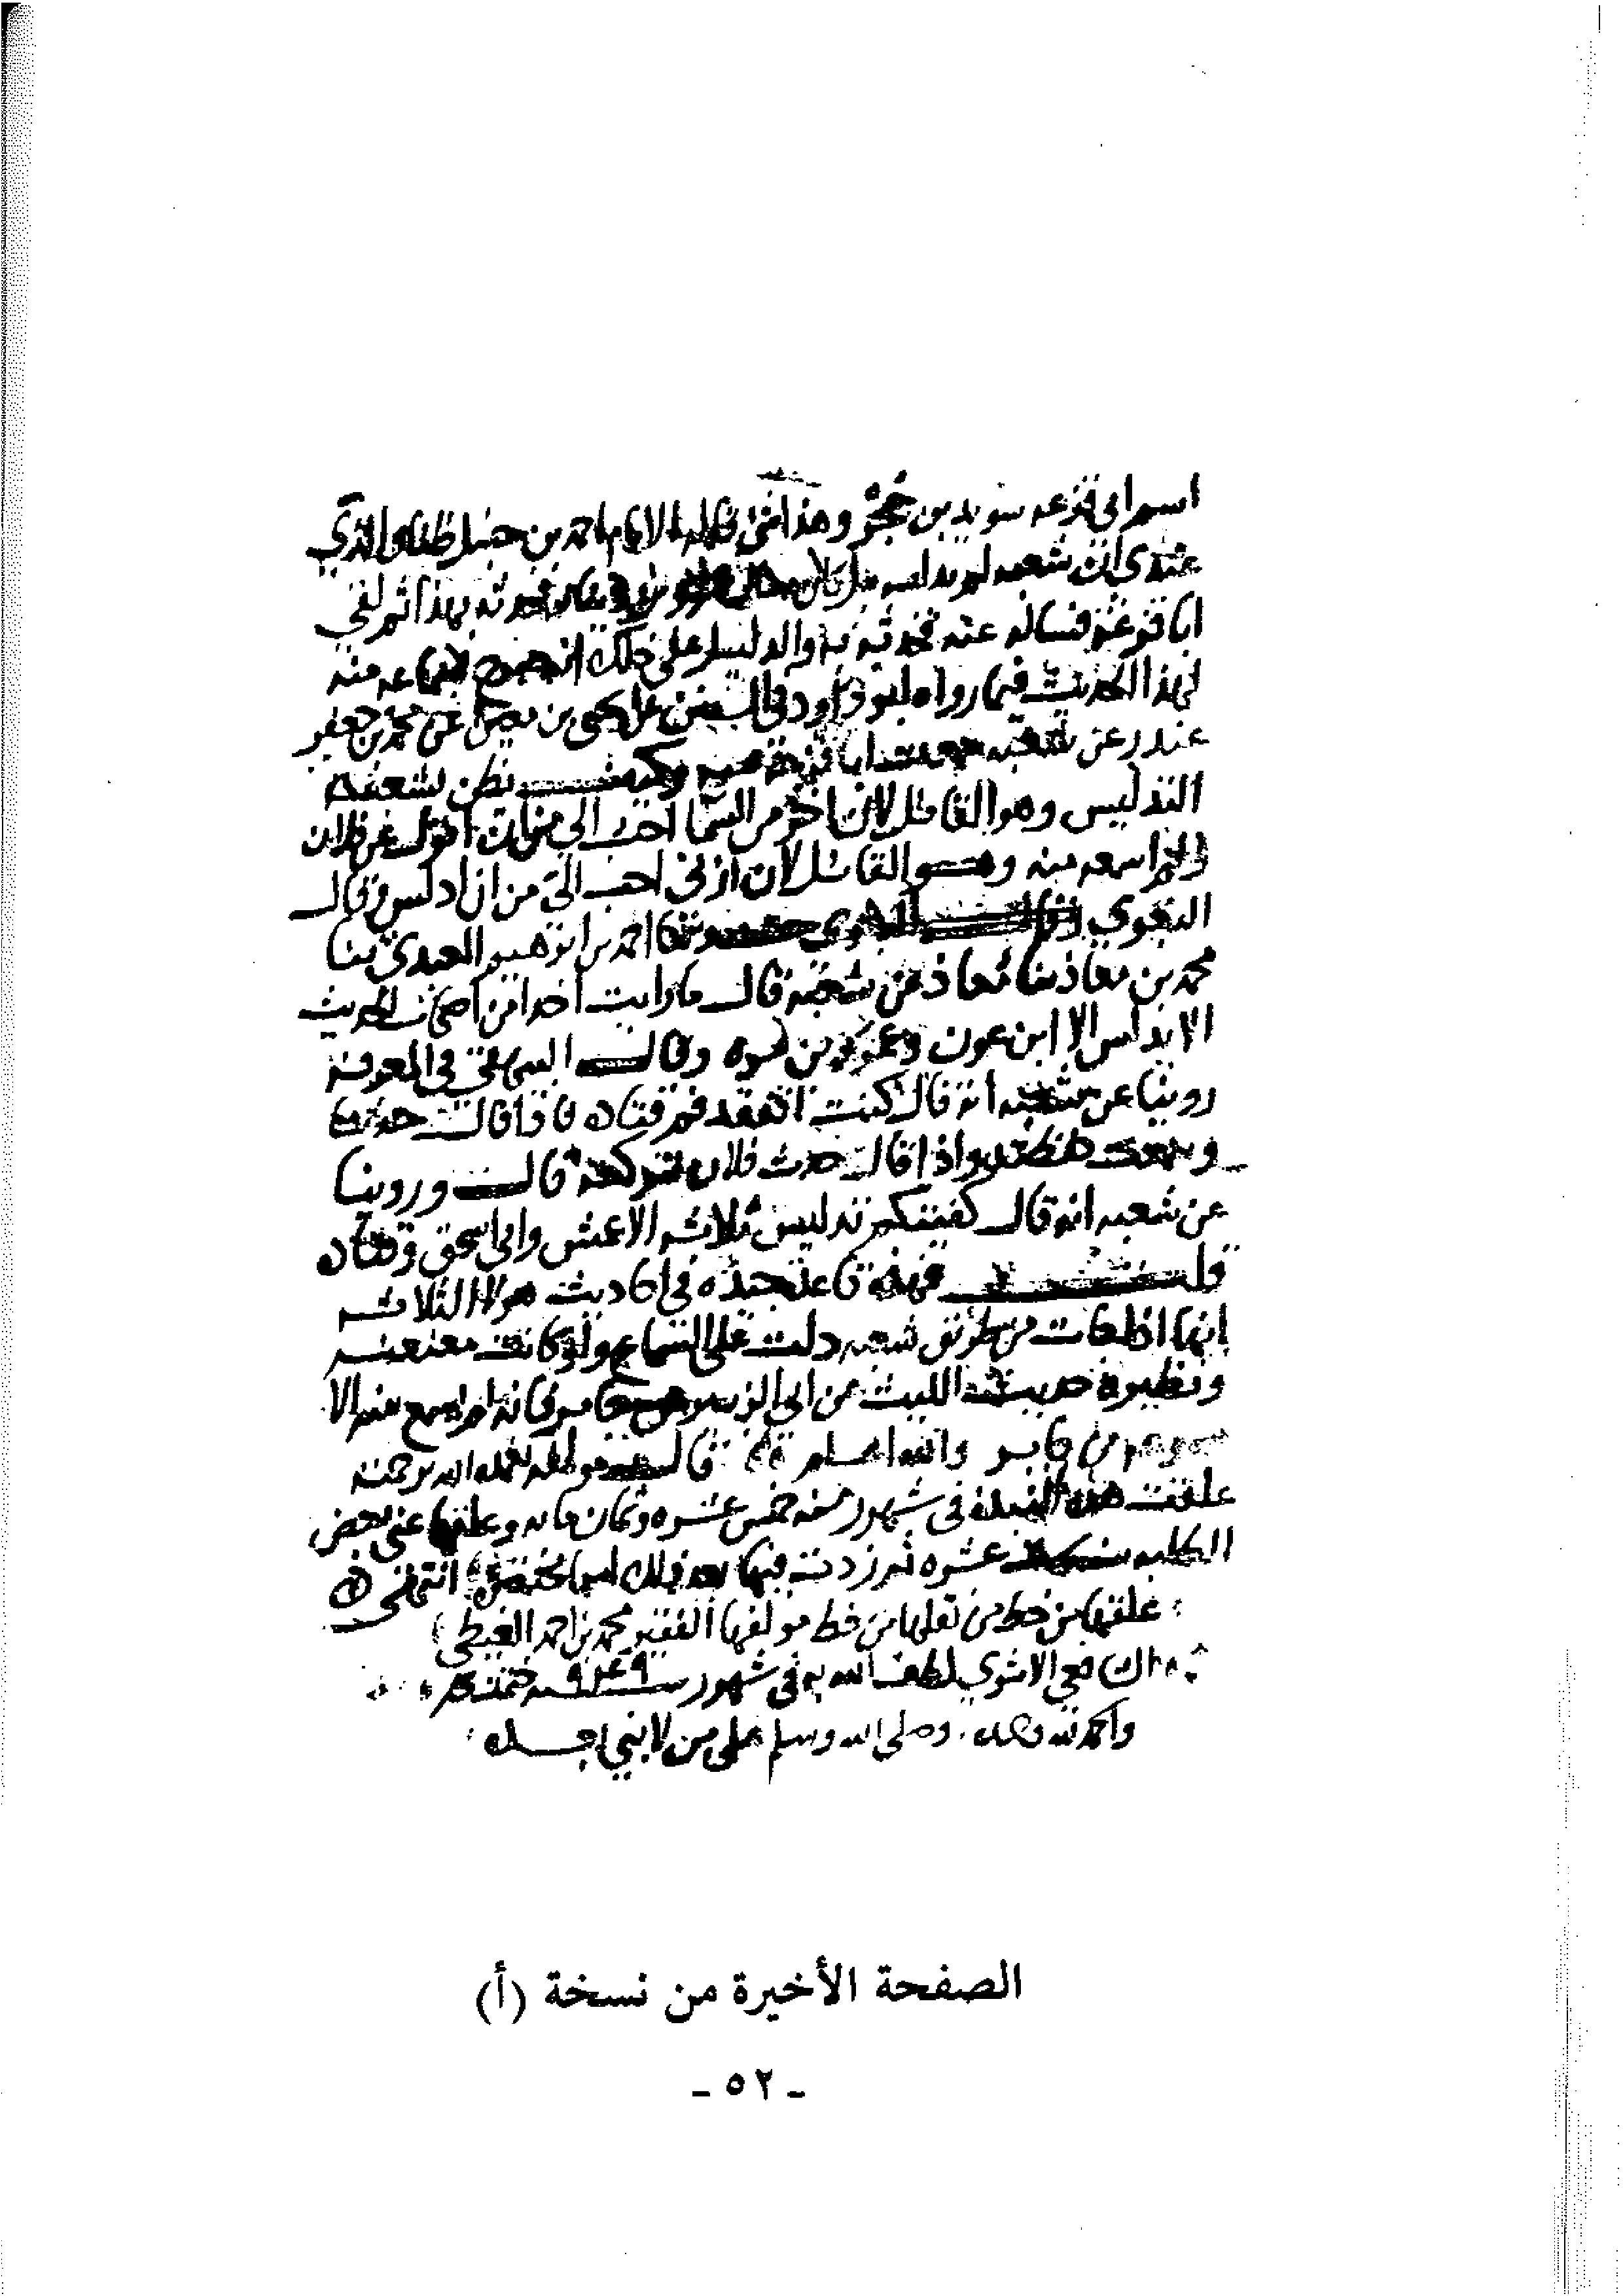 اسم ابي قزعه سويد بن حُجَير وهذا شئ قاله الامام احمد بن حنبل ظنا والذي
عندي ان شعبه لم يدلسه بل كان فحدثه بهذا ثم لقي
ابا قزعة فساله عنه فحدثه به والدليل على ذلك انه صرح بسماعه منه
لهذا الحديث فيما رواه ابو داود في السنن عن يحيى بن معين عن محمد بن جعفر
غندر عن شعبه سمعت ابا قزعة وكيف يظن بشعبه
التدليس وهو القائل لان اخر من السما احب الي من ان اقول عن فلان
ولم اسمعه منه وهو القائل لان ازني احب الي من ان ادلس وقال
البغوي ثنا احمد بن ابرهيم العبدي ثنا
محمد بن معاذ ثنا معاذ عن شعبة قال ما رايت احدا من اصحاب الحديث
الا يدلس الا ابن عون وعمرو بن مره وقال البيهقي في المعرفة
روينا عن شعبه انه قال كنت اتفقد فم قتاده فاذا قال حدثنا
وسمعت حفظته واذا قال حدث فلان تركته قال وروينا
عن شعبه انه قال كفيتكم تدليس ثلاثه الاعمش وابي اسحق وقتاده
قلت فهذه قاعدة جيده في احاديث هولا الثلاثه
انها اذا جات من طريق شعبه دلت على السماع ولو كانت معنعنه
ونظيره حديث الليث عن ابي الزبير عن جابر فانه لم يسمع منه الا
مسموعه من جابر والله اعلم قال مولفه تغمده الله برحمته
علقت هذه النبذة في شهور سنه خمس عشره وثمان مايه وعلقها عني بعض
الطلبه سنة عشره ثم زدت فيها بعد ذلك اسما انتهى
علقها من خط من نقلها من خط مولفها الفقير محمد بن احمد الغيطي
الشافعي الاثري لطف الله به في شهور سنه ٩٤٩
والحمد لله وحده وصلى الله وسلم على من لا نبي بعده
الصفحة الأخيرة من نسخة (أ)
- ٥٢ -